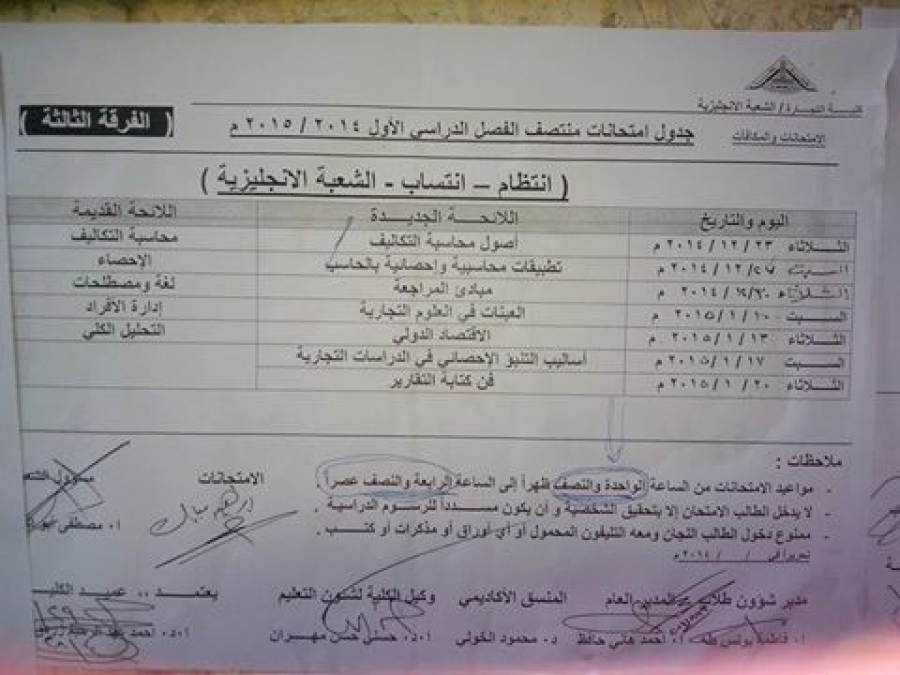 كليـــة التجـــارة / الشعبة الانجليزية
الامتحانات والمكافات
جدول امتحانات منتصف الفصل الدراسي الأول ٢٠١٤ / ٢٠١٥ م
( الفرقة الثالثة )
( انتظام – انتساب - الشعبة الانجليزية )
اليوم والتاريخ اللائحـــة الجديـــدة اللائحة القديمة
الثـــلاثاء ٢٣ / ١٢ / ٢٠١٤ م أصول محاسبة التكاليف محاسبة التكاليف
الســـبت ٢٧ / ١٢ / ٢٠١٤ م تطبيقات محاسبية وإحصائية بالحاسب الإحصاء
الثـــلاثاء ٣٠ / ١٢ / ٢٠١٤ م مبادئ المراجعة لغة ومصطلحات
الســـبت ١٠ / ١ / ٢٠١٥ م العينات في العلوم التجارية إدارة الافراد
الثـــلاثاء ١٣ / ١ / ٢٠١٥ م الاقتصاد الدولي التحليل الكلي
الســـبت ١٧ / ١ / ٢٠١٥ م أساليب التنبؤ الإحصائي في الدراسات التجارية
الثـــلاثاء ٢٠ / ١ / ٢٠١٥ م فن كتابة التقارير
ملاحظات :
- مواعيد الامتحانات من الساعة الواحدة والنصف ظهراً إلى الساعة الرابعة والنصف عصراً
- لا يدخل الطالب الامتحان إلا بتحقيق الشخصية و أن يكون مسدداً للرسوم الدراسية .
- ممنوع دخول الطالب اللجان ومعه التليفون المحمول أو أي أوراق أو مذكرات أو كتب .
تحريرا في / / ٢٠١٤م
الامتحانات مسئول
أ. مصطفى
مدير شؤون طلاب المدير العام المنسق الأكاديمي وكيل الكلية لشئون التعليم يعتمـــد .. عميـــد
أ. فاطمة يونس طه أ. أحمد هاني حافظ د. محمود الخولي أ.د. حسني حسن مهران أ.د. أحمد